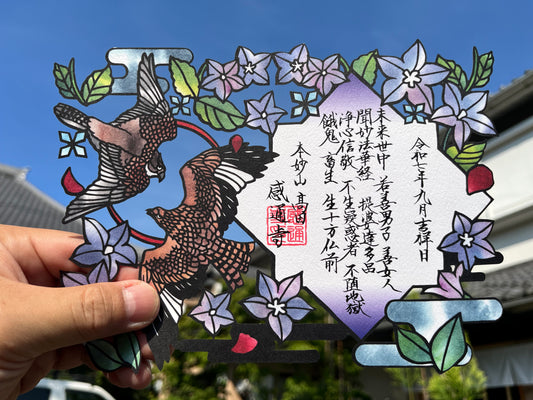 令和七年九月吉祥日
未来世中 若善男子 善女人
聞妙法華経 提婆達多品
浄心信敬 不生疑惑者 不堕地獄
餓鬼 畜生 生十方仏前
本妙山 高田
感通寺